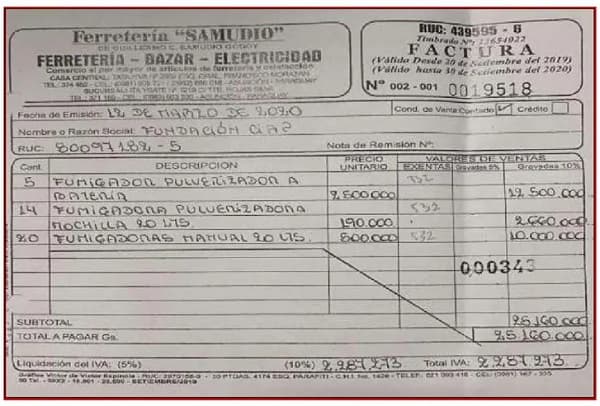 Ferretería "SAMUDIO"
DE GUILLERMO C. SAMUDIO GODOY
FERRETERÍA - BAZAR - ELECTRICIDAD
Comercio al por mayor de artículos de ferretería y calefacción
RUC: 439595 - 6
Timbrado Nº: 13654022
FACTURA
(Válido Desde 30 de Setiembre del 2019)
(Válido hasta 30 de Setiembre del 2020)
Nº 002 - 001 0019518
Fecha de Emisión: 12 DE MARZO DE 2020
Cond. de Venta: Contado ✓ Crédito
Nombre o Razón Social: FUNDACIÓN CIAP
RUC: 80097182-5 Nota de Remisión Nº:
Cant. DESCRIPCION PRECIO UNITARIO VALORES DE VENTAS
EXENTAS Gravadas 5% Gravadas 10%
5 FUMIGADOR PULVERIZADOR A 532
BATERIA 2 500000 12 500.000
14 FUMIGADORA PULVERIZADORA 532
MOCHILLA 20 LTS. 190.000 2660.000
20 FUMIGADORAS MANUAL 20 LTS. 500.000 532 10.000.000
000343
SUBTOTAL 25 160.000
TOTAL A PAGAR Gs. 25 160.000
Liquidación del IVA: (5%) (10%) 2.287.273 Total IVA: 2.287.273